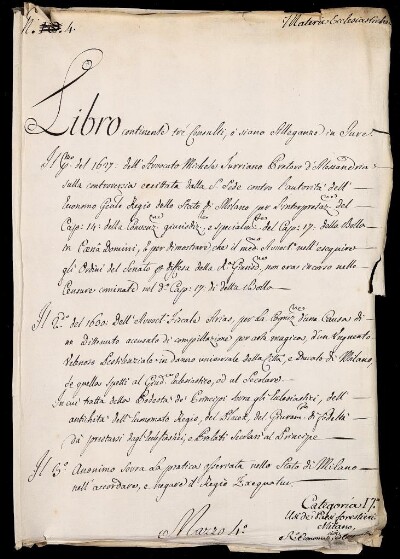 N.º 4.
Materie Ecclesiastiche
Libro continente tré Consulti, ò siano Allegaz.ni in Jure
Il P.mo del 1607. dell'Avvocato Michele Turriano Pretore d'Alessandria
sulla controversia eccitata dalla S. Sede contro l'autorità dell'
Economo Gñale Regio dello Stato di Milano per l'Interpretaz.ne del
Cap. 14. della giurisd.le, e specialm.te del Cap. 17. della Bolla
in Cœna Domini, e per dimostrare che il med.mo nell'eseguire
gli Ordini del Senato difesa della R.a Giurisd.ne, non era incorso nelle
Censure cominate nel d.º Cap. 17. di detta Bolla.
Il 2.º del 1630. dell'Avvoc.to Fiscale Arias, per la cogniz.ne d'una Causa di
un Ditenuto accusato di compillazione per arte magica, d'un Unguento
Velenoso Pestilenziale in danno universale della Città, e Ducato di Milano,
se quella spetti al Giud.ce Eclesiastico, ed al Secolare
In cui tratta della Podestà de' Principi sovra gli Eclesiastici, dell'
antichità dell'Economato Regio, del Placet, del Giuram.to di fedeltà
da prestarsi dagl'Eclesiastici, e Prelati Secolari al Principe
Il 3.º Anonimo Sovra la pratica osservata nello Stato di Milano
nell'accordare, e negare il Regio Exequatur.
Categoria 17.ª
Usi de' Paesi forestieri
Milano,
R.º Economato
Mazzo 4.º